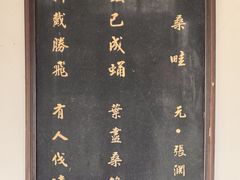 桑畦 元·張
已成蛹 葉盡桑
戴勝飛 有人伐